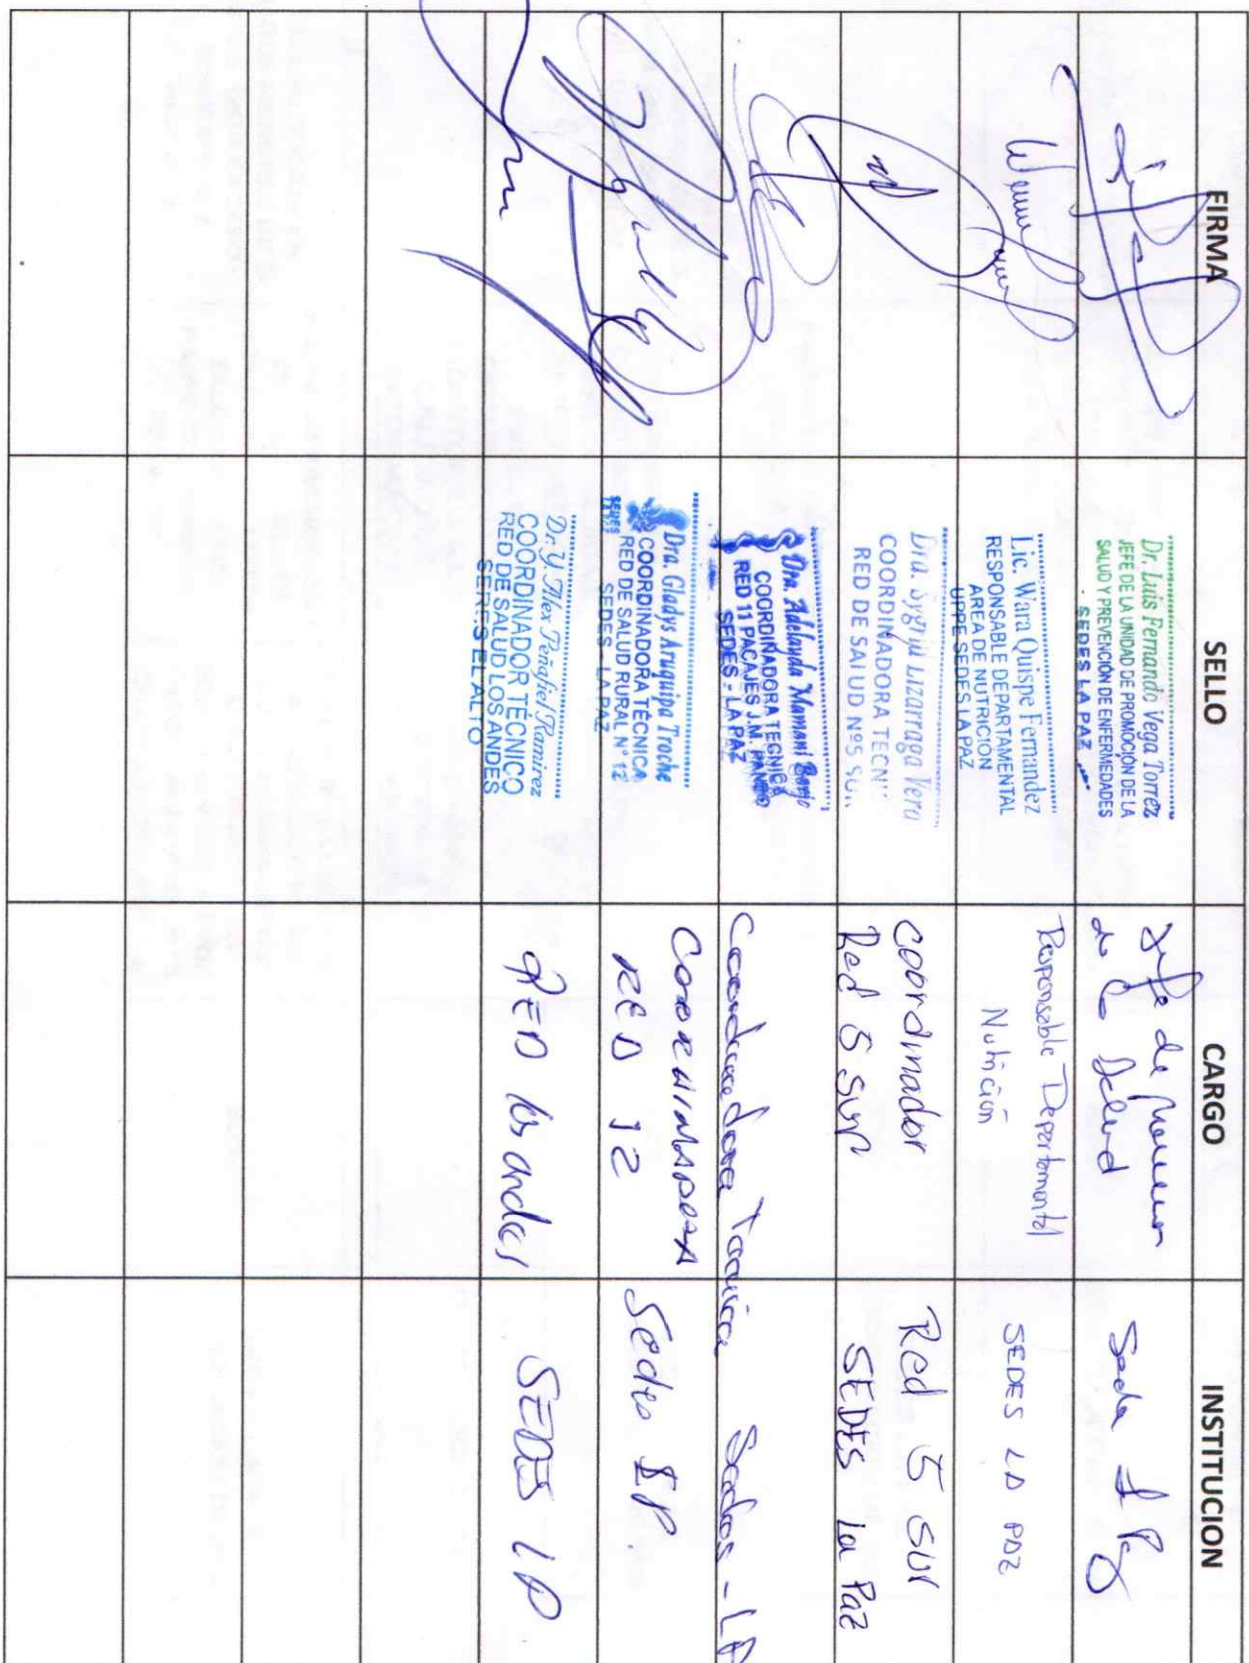 FIRMA SELLO CARGO INSTITUCION
Dr. Luis Fernando Vega Torrez
JEFE DE LA UNIDAD DE PROMOCIÓN DE LA
SALUD Y PREVENCIÓN DE ENFERMEDADES
SEDES LA PAZ
Jefe de
de la Salud
Lic. Wara Quispe Fernandez
RESPONSABLE DEPARTAMENTAL
AREA DE NUTRICIÓN
UPPE SEDES LA PAZ
Responsable Departamental
Nutrición
SEDES LA PAZ
Dra. Sygrid Lizarraga Vera
COORDINADORA TECNI
RED DE SALUD Nº5 SU
Coordinador
Red 5 sur
Red 5 Sur
SEDES La Paz
Dra. Adelayda Mamani
COORDINADORA TECNICA
RED 11 PACAJES J.M. PANDO
SEDES - LA PAZ
Coordinadora Tecnica
Sedes - LP
Dra. Gladys Aruquipa Troche
COORDINADORA TÉCNICA
RED DE SALUD RURAL N° 12
SEDES LA PAZ
SEDES
COORDINADORA
RED 12
Sedes LP.
Dr. Y. Alex Peñafiel Ramirez
COORDINADOR TÉCNICO
RED DE SALUD LOS ANDES
SERES EL ALTO
RED los andes
SEDES LP